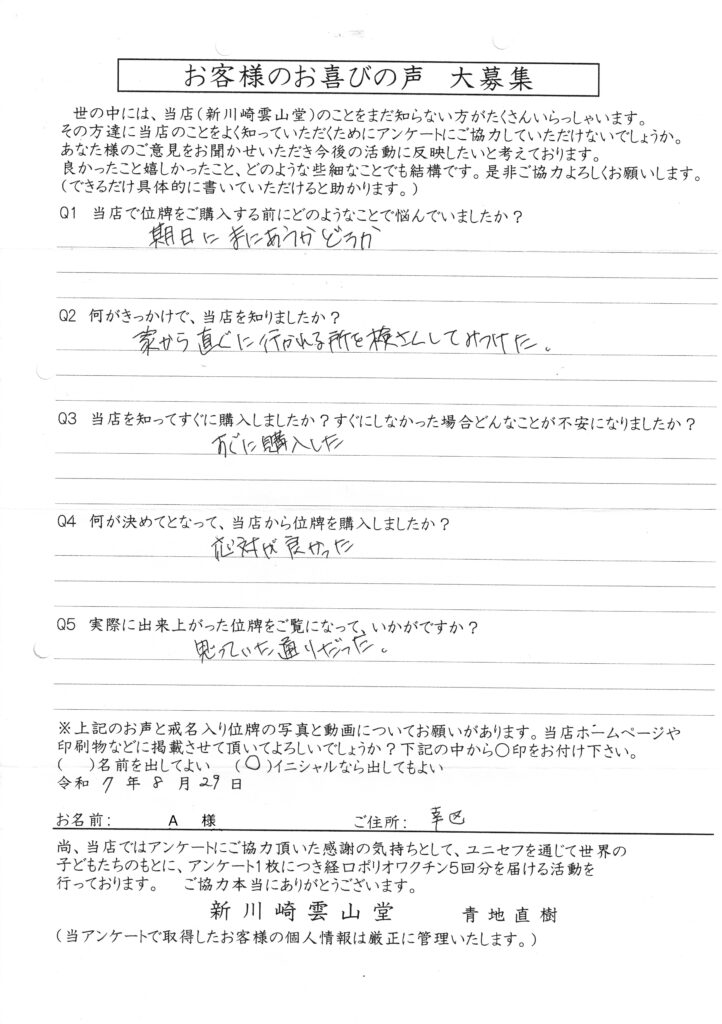 お客様のお喜びの声 大募集
世の中には、当店(新川崎雲山堂)のことをまだ知らない方がたくさんいらっしゃいます。
その方達に当店のことをよく知っていただくためにアンケートにご協力していただけないでしょうか。
あなた様のご意見をお聞かせいただき今後の活動に反映したいと考えております。
良かったこと嬉しかったこと、どのような些細なことでも結構です。是非ご協力よろしくお願いします。
(できるだけ具体的に書いていただけると助かります。)
Q1 当店で位牌をご購入する前にどのようなことで悩んでいましたか?
期日にまにあうかどうか
Q2 何がきっかけで、当店を知りましたか?
家から直ぐに行かれる所を検さくしてみつけた。
Q3 当店を知ってすぐに購入しましたか?すぐにしなかった場合どんなことが不安になりましたか?
すぐに購入した
Q4 何が決めてとなって、当店から位牌を購入しましたか?
応対が良かった
Q5 実際に出来上がった位牌をご覧になって、いかがですか?
思っていた通りだった。
※上記のお声と戒名入り位牌の写真と動画についてお願いがあります。当店ホームページや
印刷物などに掲載させて頂いてよろしいでしょうか?下記の中から○印をお付け下さい。
( )名前を出してよい (○)イニシャルなら出してもよい
令和 7 年 8 月 29 日
お名前: A 様 ご住所: 幸区
尚、当店ではアンケートにご協力頂いた感謝の気持ちとして、ユニセフを通じて世界の
子どもたちのもとに、アンケート1枚につき経口ポリオワクチン5回分を届ける活動を
行っております。 ご協力本当にありがとうございます。
新川崎雲山堂 青地直樹
(当アンケートで取得したお客様の個人情報は厳正に管理いたします。)